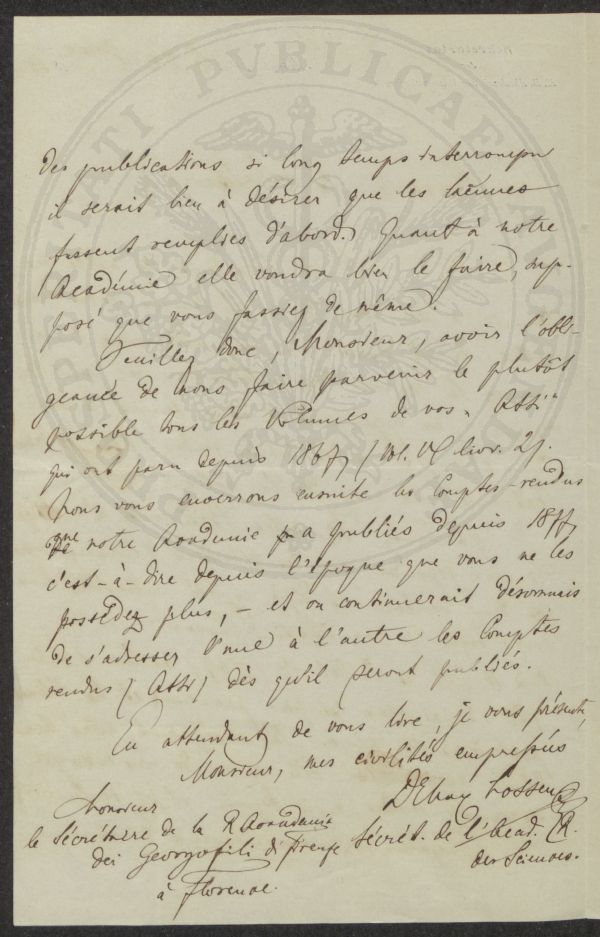 PVBLICAE
des publications si long temps interrompu
il serait bien à désirer que les lacunes
fussent remplies d'abord. Quant à notre
Académie elle voudra bien le faire, sup-
posé que vous fassiez de même.
Veuillez donc, Monsieur, avoir l'obli-
geance de nous faire parvenir le plutôt
possible tous les Volumes de vos „Atti"
qui ont paru depuis 1867 / Vol. livr. 2/.
Nous vous enverrons ensuite les Comptes-rendus
que notre Academie a publiés depuis 1877
c'est-à-dire depuis l'époque que vous ne les
possédez plus, – et on continuerait désormais
de s'adresser l'une à l'autre les Comptes
rendus / Atti / dès qu'il seront publiés.
En attendant de vous lire, je vous présente,
Monsieur, mes civilités empressées
Lossen
Monsieur
le Sécrétaire de la R Accademia
dei Georgofili di Firenze
à Florence.
Sécrét. de l'Acad. R.
des Sciences.